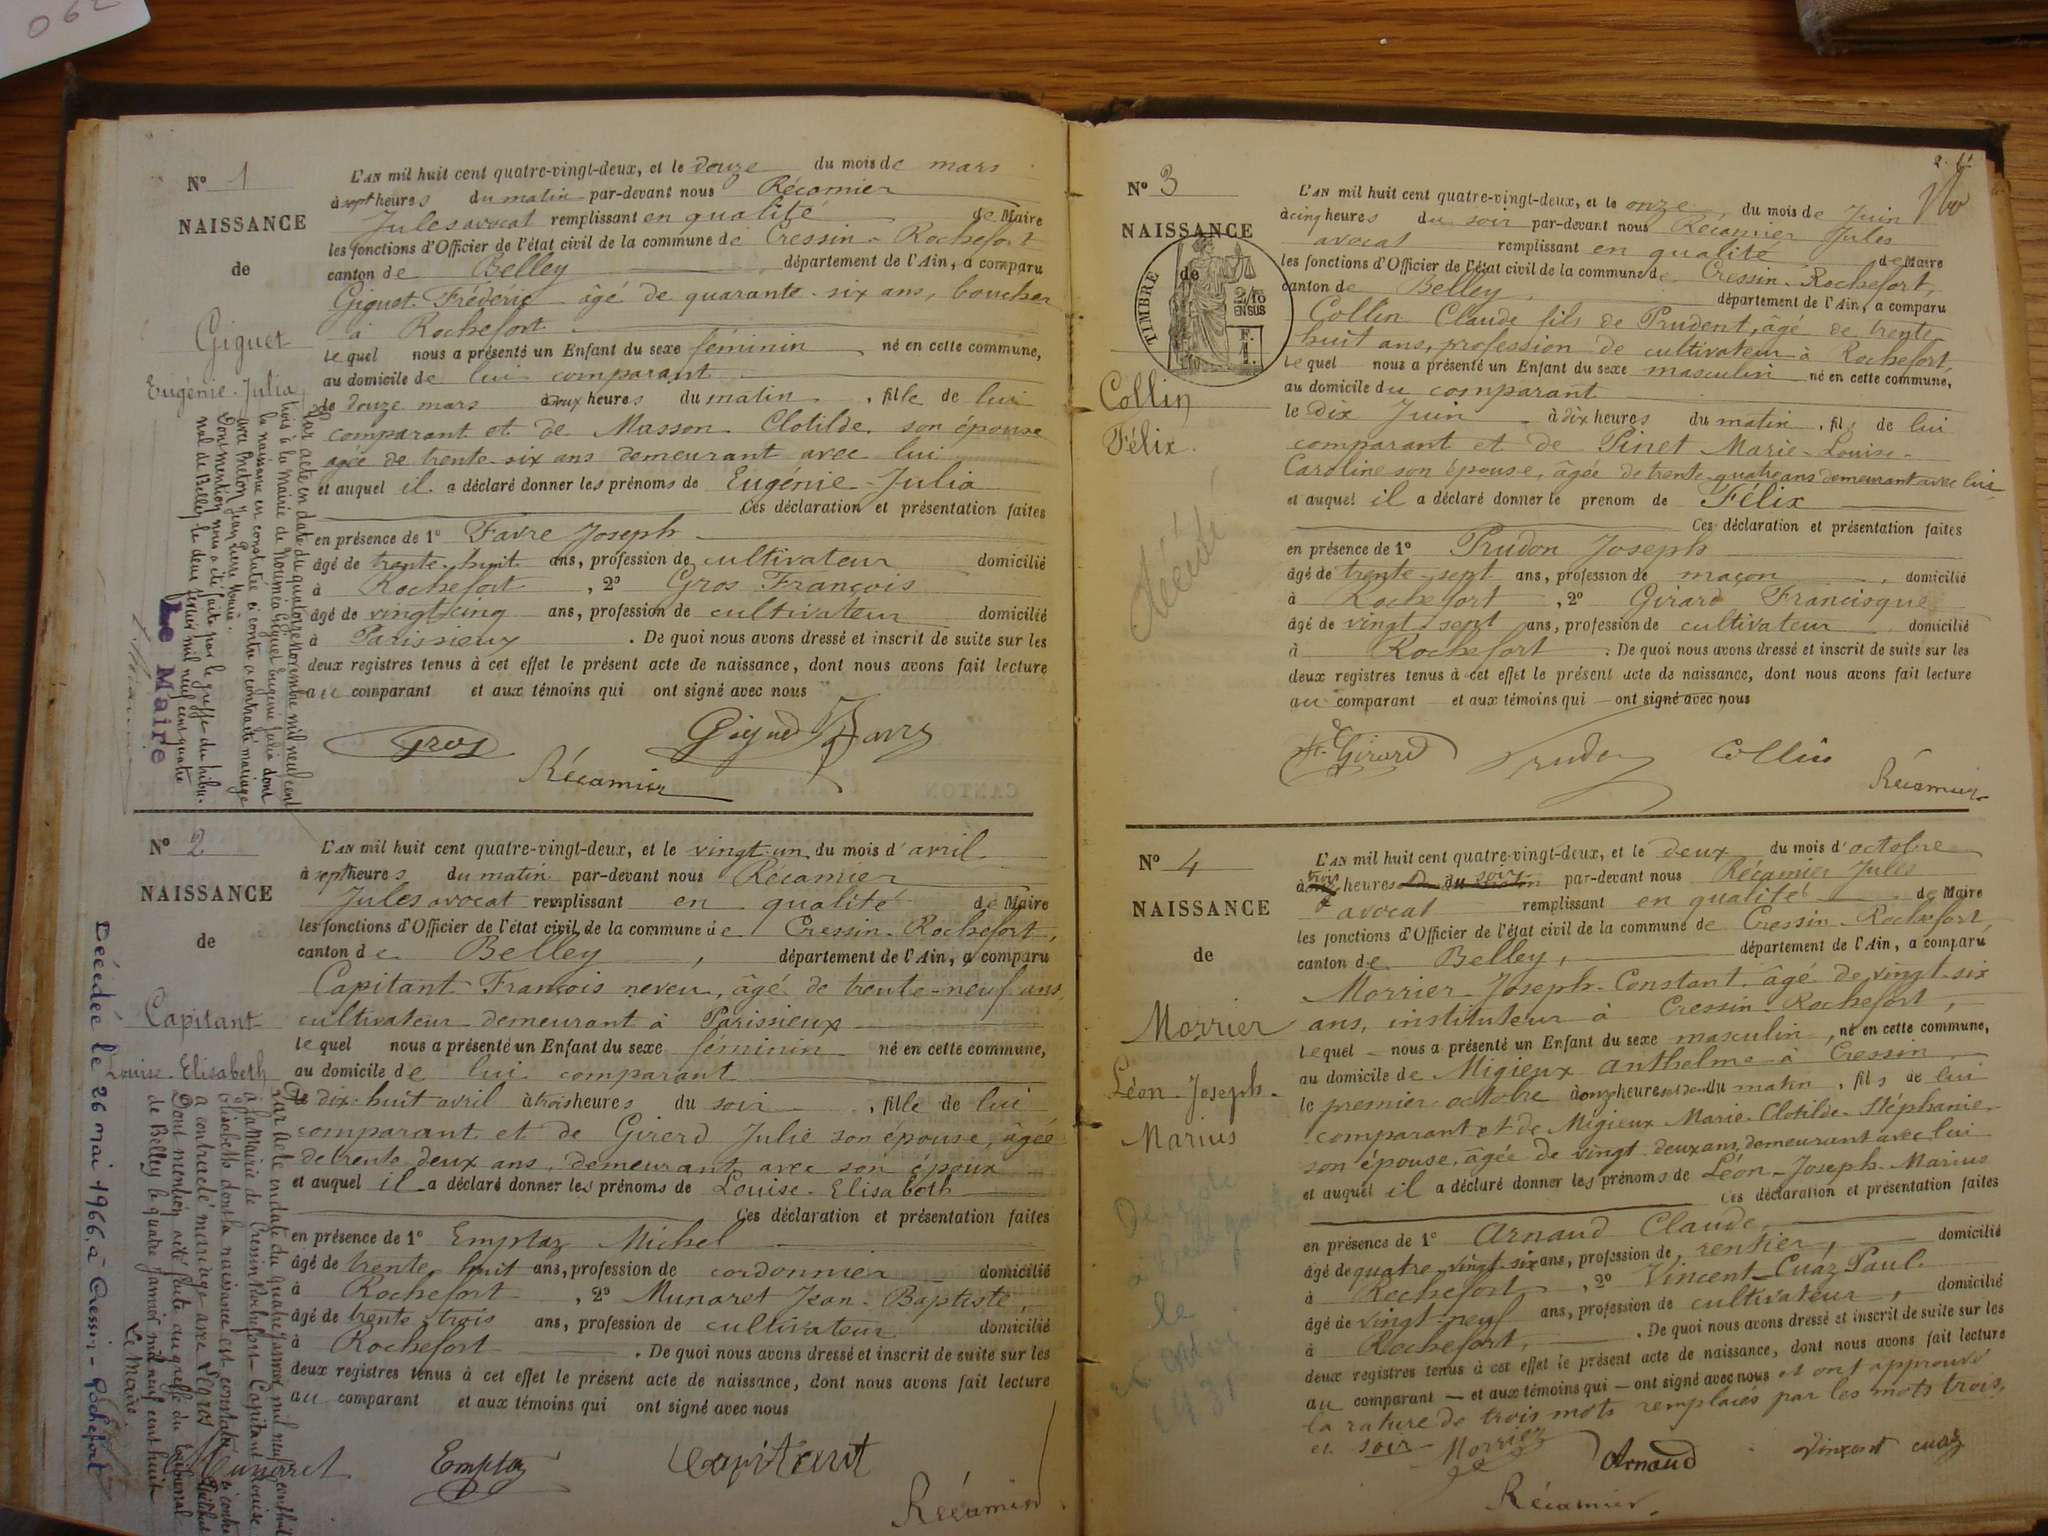 062
N° 1
NAISSANCE
de
Giguet
Eugénie-Julia
L'AN mil huit cent quatre-vingt-deux, et le douze du mois de mars
à sept heures du matin par-devant nous Récamier
Jules avocat remplissant en qualité de Maire
les fonctions d'Officier de l'état civil de la commune de Cressin-Rochefort
canton de Belley, département de l'Ain, a comparu
Giguet Frédéric âgé de quarante-six ans, boucher
à Rochefort
lequel nous a présenté un Enfant du sexe féminin né en cette commune,
au domicile de lui comparant
le douze mars à deux heures du matin, fille de lui
comparant et de Masson Clotilde son épouse
agée de trente-six ans demeurant avec lui
et auquel il a déclaré donner les prénoms de Eugénie-Julia
Ces déclaration et présentation faites
en présence de 1° Favre Joseph
âgé de trente-huit ans, profession de cultivateur domicilié
à Rochefort, 2° Gros François
âgé de vingt cinq ans, profession de cultivateur domicilié
à Parissieux. De quoi nous avons dressé et inscrit de suite sur les
deux registres tenus à cet effet le présent acte de naissance, dont nous avons fait lecture
au comparant et aux témoins qui ont signé avec nous
Gros Giguet Favre
Récamier
Par acte en date du quatorze Novembre mil neuf cent
trois à la Mairie de Nouméa Giguet Eugénie Julia dont
la naissance est constatée ci contre a contracté mariage
avec Breton Jean Pierre Marie.
Dont mention nous a été faite par le greffe du tribu-
nal de Belley le deux mil neuf cent quatre
Le Maire
N° 2
NAISSANCE
de
Capitant
Louise-Elisabeth
L'AN mil huit cent quatre-vingt-deux, et le vingt-un du mois d'avril
à sept heures du matin par-devant nous Récamier
Jules avocat remplissant en qualité de Maire
les fonctions d'Officier de l'état civil de la commune de Cressin-Rochefort,
canton de Belley, département de l'Ain, a comparu
Capitant François neveu, âgé de trente-neuf ans,
cultivateur demeurant à Parissieux
lequel nous a présenté un Enfant du sexe féminin né en cette commune,
au domicile de lui comparant
le dix-huit avril à trois heures du soir, fille de lui
comparant et de Girerd Julie son épouse, âgée
de trente deux ans, demeurant avec son époux
et auquel il a déclaré donner les prénoms de Louise-Elisabeth
Ces déclaration et présentation faites
en présence de 1° Emptaz Michel
âgé de trente huit ans, profession de cordonnier domicilié
à Rochefort, 2° Munaret Jean-Baptiste,
âgé de trente-trois ans, profession de cultivateur domicilié
à Rochefort. De quoi nous avons dressé et inscrit de suite sur les
deux registres tenus à cet effet le présent acte de naissance, dont nous avons fait lecture
au comparant et aux témoins qui ont signé avec nous
Munaret Emptaz Capitant
Récamier
Par acte en date du quatre janvier mil neuf cent huit
à la Mairie de Cressin Rochefort Capitant Louise
Elisabeth dont la naissance est constatée ci contre
a contracté mariage avec Legros
Dont mention a été faite au greffe du tribunal
de Belley le quatre janvier mil neuf cent huit
Le Maire.
Décédée le 26 mai 1966, à Cressin-Rochefort
N° 3
NAISSANCE
de
TIMBRE
2/10 EN SUS
F. 1.
Collin
Félix.
Décédé
L'AN mil huit cent quatre-vingt-deux, et le onze, du mois de Juin
à cinq heures du soir par-devant nous Récamier Jules
avocat remplissant en qualité de Maire
les fonctions d'Officier de l'état civil de la commune de Cressin-Rochefort,
canton de Belley, département de l'Ain, a comparu
Collin Claude fils de Prudent, âgé de trente
huit ans, profession de cultivateur à Rochefort,
lequel nous a présenté un Enfant du sexe masculin né en cette commune,
au domicile du comparant
le dix Juin à dix heures du matin, fils de lui
comparant et de Pinet Marie-Louise-
Caroline son épouse, âgée de trente-quatre ans demeurant avec lui
et auquel il a déclaré donner le prenom de Félix
Ces déclaration et présentation faites
en présence de 1° Prudon Joseph
âgé de trente-sept ans, profession de maçon, domicilié
à Rochefort, 2° Girard Francisque
âgé de vingt-sept ans, profession de cultivateur domicilié
à Rochefort. De quoi nous avons dressé et inscrit de suite sur les
deux registres tenus à cet effet le présent acte de naissance, dont nous avons fait lecture
au comparant et aux témoins qui ont signé avec nous
Girard Prudon Collin
Récamier
N° 4
NAISSANCE
de
Morrier
Léon-Joseph-
Marius
L'AN mil huit cent quatre-vingt-deux, et le deux du mois d'octobre
à trois heures du soir par-devant nous Récamier Jules
avocat remplissant en qualité de Maire
les fonctions d'Officier de l'état civil de la commune de Cressin-Rochefort,
canton de Belley, département de l'Ain, a comparu
Morrier Joseph-Constant âgé de vingt-six
ans, instituteur à Cressin-Rochefort,
lequel nous a présenté un Enfant du sexe masculin, né en cette commune,
au domicile de Migieux Anthelme à Cressin
le premier octobre à onze heures du matin, fils de lui
comparant et de Migieux Marie-Clotilde-Stéphanie-
son épouse, âgée de vingt-deux ans, demeurant avec lui
et auquel il a déclaré donner les prénoms de Léon-Joseph-Marius
Ces déclaration et présentation faites
en présence de 1° Arnaud Claude,
âgé de quatre-vingt-six ans, profession de rentier, domicilié
à Rochefort, 2° Vincent-Cuaz Paul.
âgé de vingt-neuf ans, profession de cultivateur, domicilié
à Rochefort. De quoi nous avons dressé et inscrit de suite sur les
deux registres tenus à cet effet le présent acte de naissance, dont nous avons fait lecture
au comparant et aux témoins qui ont signé avec nous et ont approuvé
la rature de trois mots remplacés par les mots trois,
et soir
Morrier Arnaud Vincent Cuaz
Récamier.